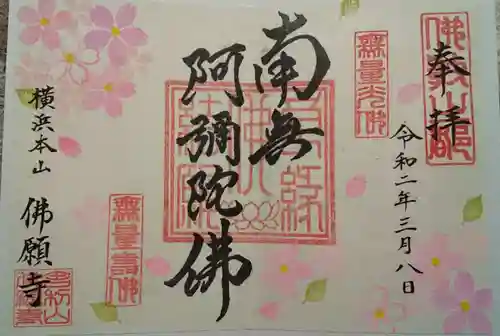 奉拝
令和二年三月八日
無量光佛
南無
阿彌陀佛
無量壽佛
横浜本山
佛願寺